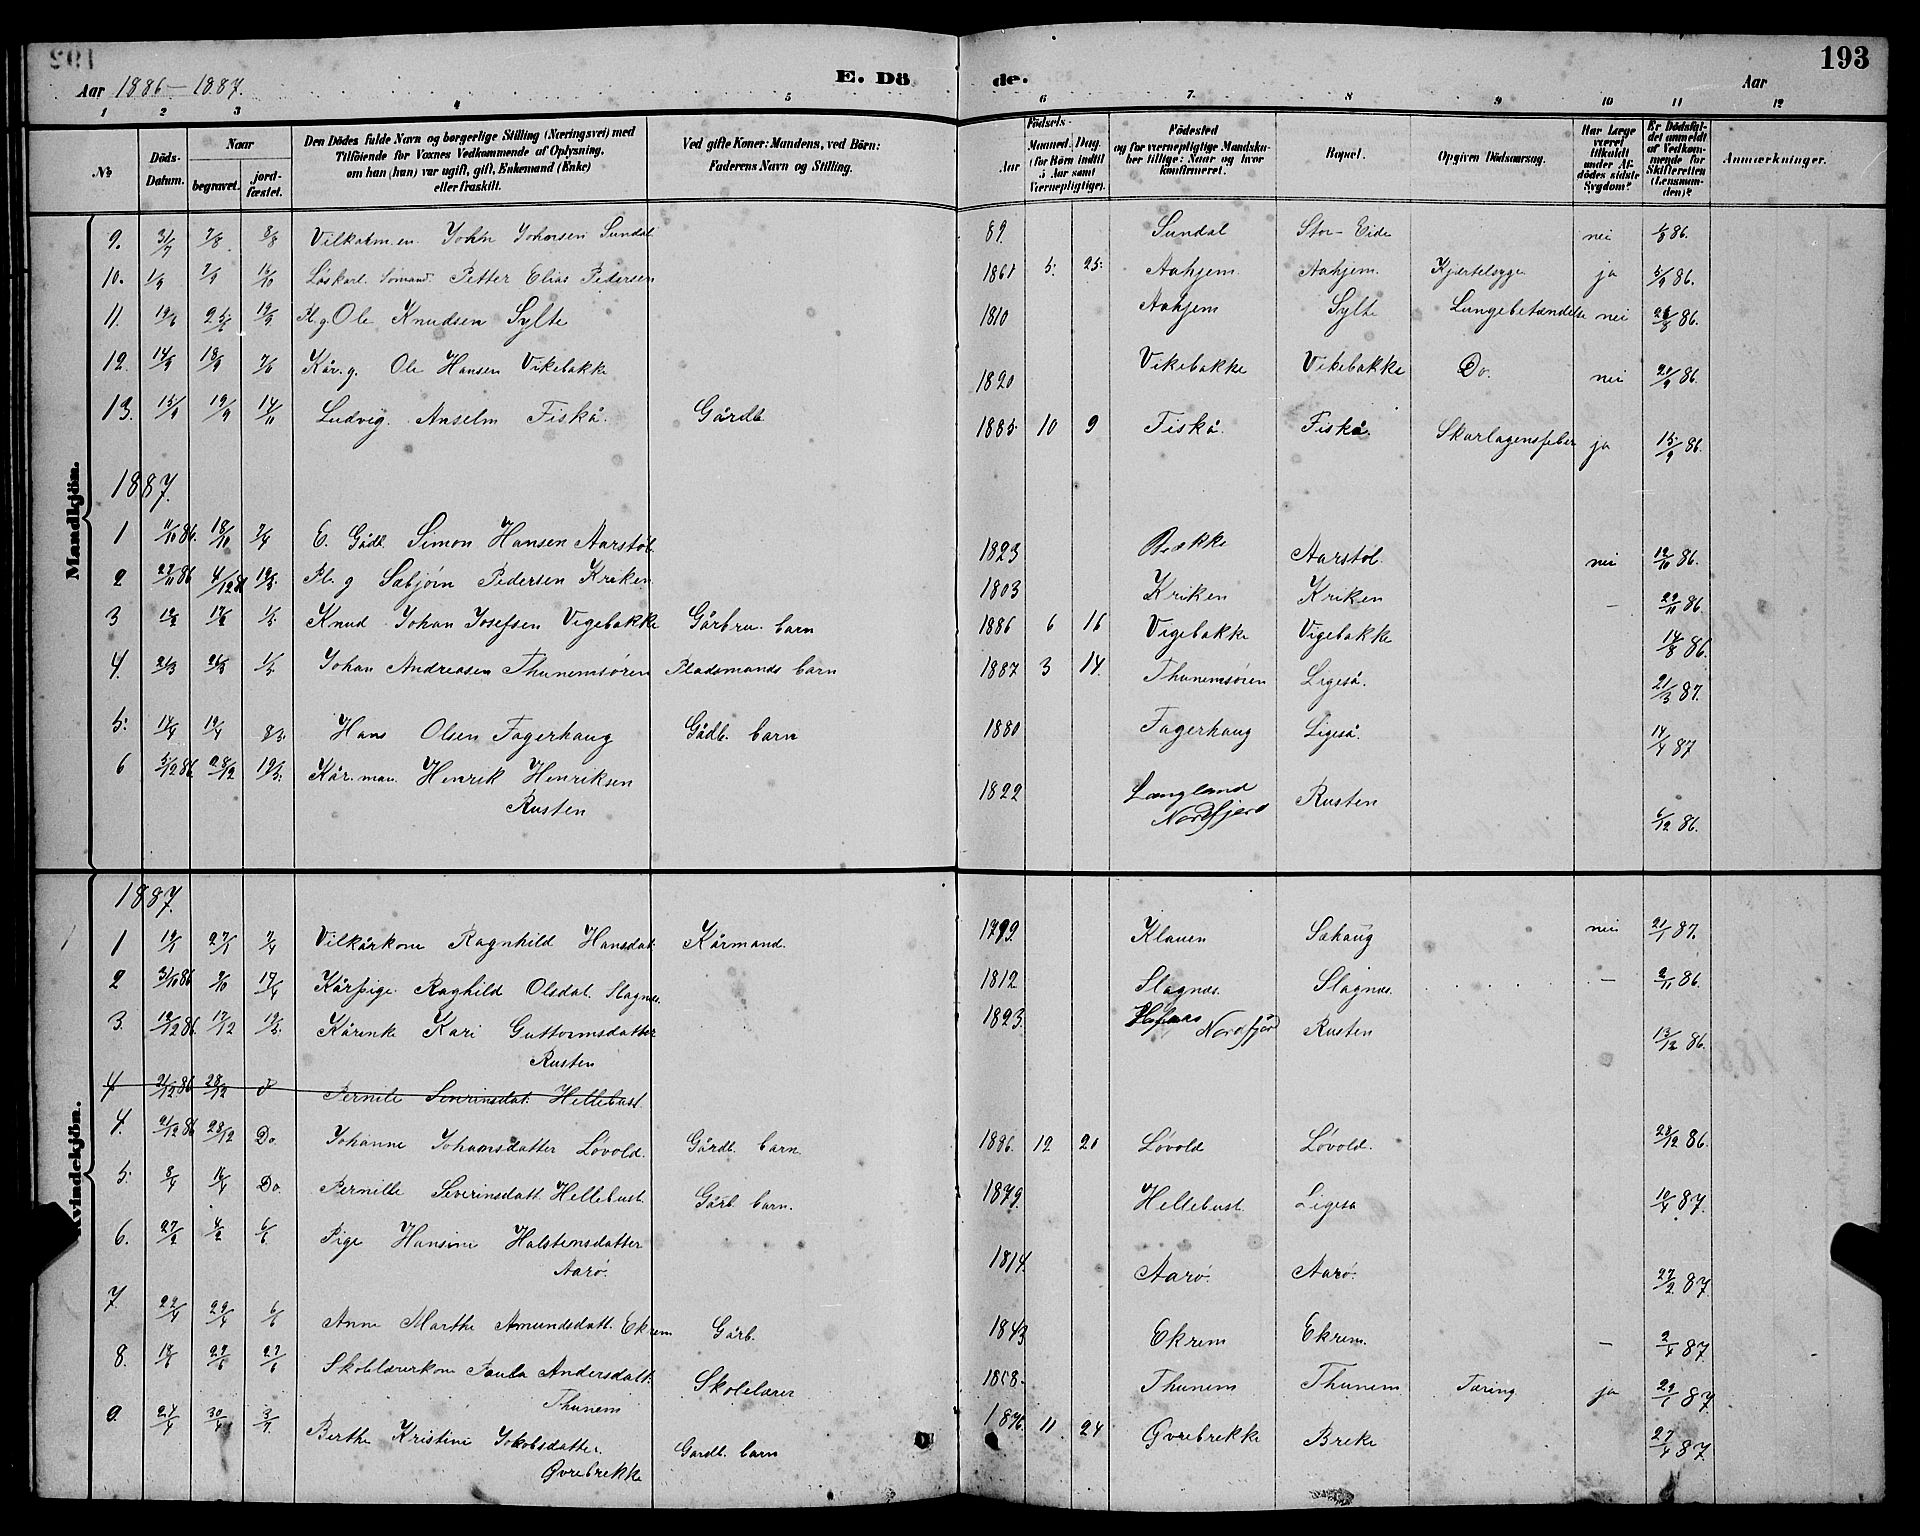 193
Aar 1886–1887. E. Dö de. Aar
1 2 3 4 5 6 7. 8 9 10 11 12
№ Döds-Datum. Naar begravet. jord-fæstet.
Den Dödes fulde Navn og borgerlige Stilling (Næringsvei) med
Tilföiende for Voxnes Vedkommende af Oplysning,
om han (hun) var ugift, gift, Enkemand (Enke)
eller fraskilt.
Ved gifte Koner: Mandens, ved Börn:
Faderens Navn og Stilling.
Födsels-
Aar Maaned. Dag.
(for Börn indtil
5 Aar samt
Værnepligtige).
Födested
og for værnepligtige Mandska-
ber tillige: Naar og hvor
konfirmeret.
Bopæl.
Opgiven Dödsaarsag.
Har Læge
været
tilkaldt
under Af-
dödes sidste
Sygdom?
Er Dödsfal-
det anmeldt
af Vedkom-
mende for
Skifteretten
(Lensman-
den)?
Anmærkninger.
Mandkjön.
9. 31/7 7/8 8/8 John Johnsen Sundal 89. Sundal Stor-Eide nei 86.
10. 1/9 7/9 Løskarl Sømand Petter Elias Pedersen 1861 5. 25. Aahjem Aahjem. ja 5/9 86.
11. Pl.g. Ole Knudsen Sylte 1810 Aahjem Sylte Lungebetændelse nei 86.
12. 14/9 18/9 Kår.g. Ole Hansen Vikebakke 1820 Vikebakke Vikebakke Do. nei 20/9 86.
13. 15/9 19/9 14/11 Ludvig Anselm Fiskå. Gårdb. 1885. 10 9 Fiskå. Fiskå. Skarlagensfeber ja 15/9 86.
1887.
1 11/10 86. 18/10 7/4 E. Gådb. Simon Hansen Aarstöl. 1823 Brække Aarstöl. nei 12/10 86.
2 Pl. g Sæbjørn Pedersen Kriken 1803 Kriken Kriken – 22/11 86.
3 Knud Johan Josefsen Vigebakke Gårbru. barn 1886 6 16 Vigebakke Vigebakke 14/8 86.
4. 21/3 Johan Andreasen Thunemsøren Pladsmands barn 1887 3 14. Thunemsøren Ligeså. 21/3 87.
5. 14/4 19/4 Hans Olsen Fagerhaug Gådb. barn 1880 Fagerhaug Ligeså. 14/4 87
6 5/12 86. 28/12 Kår.man. Henrik Henriksen
Rusten 1822 Langland
Nordfjord Rusten 6/12 86.
Kvindekjön.
1887.
1 19/1 27/1 7/4 Vilkårkone Ragnhild Hansdat. Kårmand. 1799. Klauen Sæhaug nei 21/1 87.
2 31/10 86 17/4 Kårpige. Raghild Olsdat. Slagnes. 1812 Slagnes. Slagnes. – 2/11 86.
3. 12/12 86. 17/12 Kårenke Kari Guttormsdatter
Rusten 1823. Nordfjord Rusten 13/12 86.
4 21/12 86 28/12 Pernile Severinsdat. Hellebust.
4. 21/12 86 28/12 Do. Johanne Johansdatter Løvold. Gårdb. barn. 1886. 12 20 Løvold Løvold. 28/12 86.
5. 8/4 Do. Pernille Severinsdatt. Hellebust Gårb. barn. 1879. Hellebust. Ligesa 10/4 87.
6. 27/2 Pige Hansine Halstensdatter
Aarø. 1814. Aarø. Aarø. 27/2 87.
7. 22/4 29/4 Anne Marthe Amundsdatt. Ekrem Gårb. 1843 Ekrem Ekrem. – 87
8. Skolelærerkone Paula Andersdatt.
Thunem Skolelærer Thunem Thunem. Tæring ja 87
9. 24/4 30/4 Berthe Kristine Jokobsdatter.
Øvrebrekke Gardb. barn 1876. 11. 24 Øvrebrekke Breke 27/4 87.